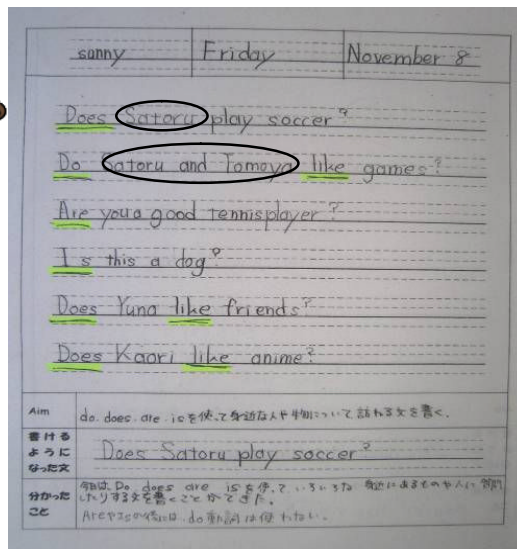 sunny Friday November 8
Does Satoru play soccer?
Do Satoru and Tomoya like games?
Are you a good tennis player?
Is this a dog?
Does Yuna like friends?
Does Kaori like anime?
Aim do. does. are. isを使って身近な人や物について訪ねる文を書く。
書ける
ように
なった文
Does Satoru play soccer?
分かった
こと
今日は Do does are isを使って いろいろな 身近にあるものや人に 質問
したりする文を書くことができた。
Areやisの後には do 動詞は使わない。